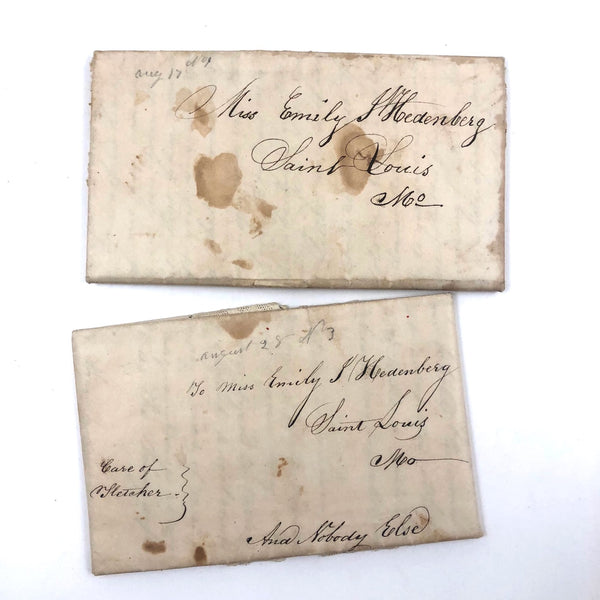 aug 17 No 1
Miss Emily S Hedenberg
Saint Louis
Mo
august 28 No 3
To Miss Emily S Hedenberg
Saint Louis
Mo
Care of
Fletcher
And Nobody Else